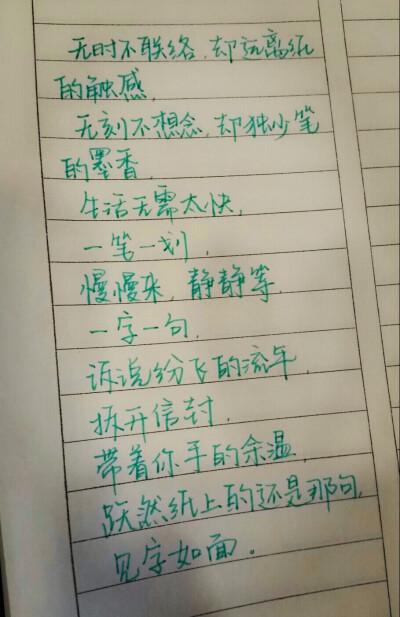 无时不联络,却远离纸
的触感,
无刻不想念,却独少笔
的墨香,
生活无需太快,
一笔一划,
慢慢来,静静等,
一字一句,
诉说纷飞的流年,
拆开信封,
带着你手的余温,
跃然纸上的还是那句,
见字如面。